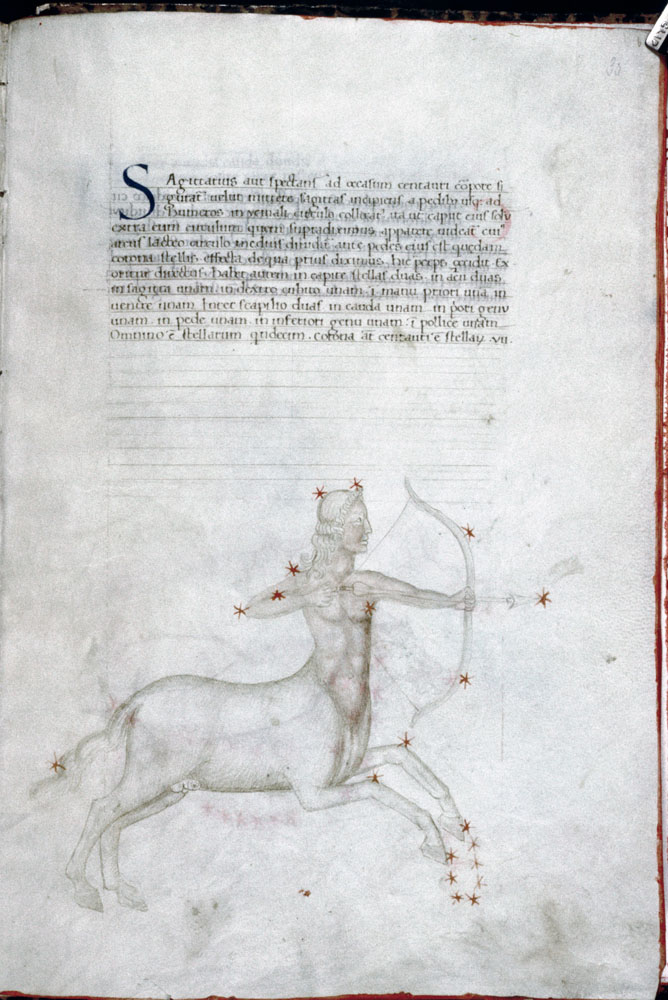 SAgittarius aut spectans ad occasum centauri corpore fi
guratꝰ uelut mittere sagittas incipiens a pedibꝰ usqꝫ ad
humeros in yemali circulo collocatꝰ ita ut caput eius solū
extra eum circulum quem supradiximus apparere uideat᷑ cuiꝰ
arcus lacteo circulo mediuſ diuidit᷑ ante pedes eius est quedam
corona stellis effecta de qua prius diximus hic p̄ceps occidit Ex
oritur directus. habet autem in capite stellas duas. in arcu duas.
in sagitta unam. in dextro cubito unam. ī manu priori unā. in
uentre unam. Inter scapilio duas. in cauda unam. in pōri genu
unam. in pede unam. in inferiori genu unam. ī pollice unam.
Omnino ē stellarum quidecim. corona aūt centauri ē stellaꝝ. vii.